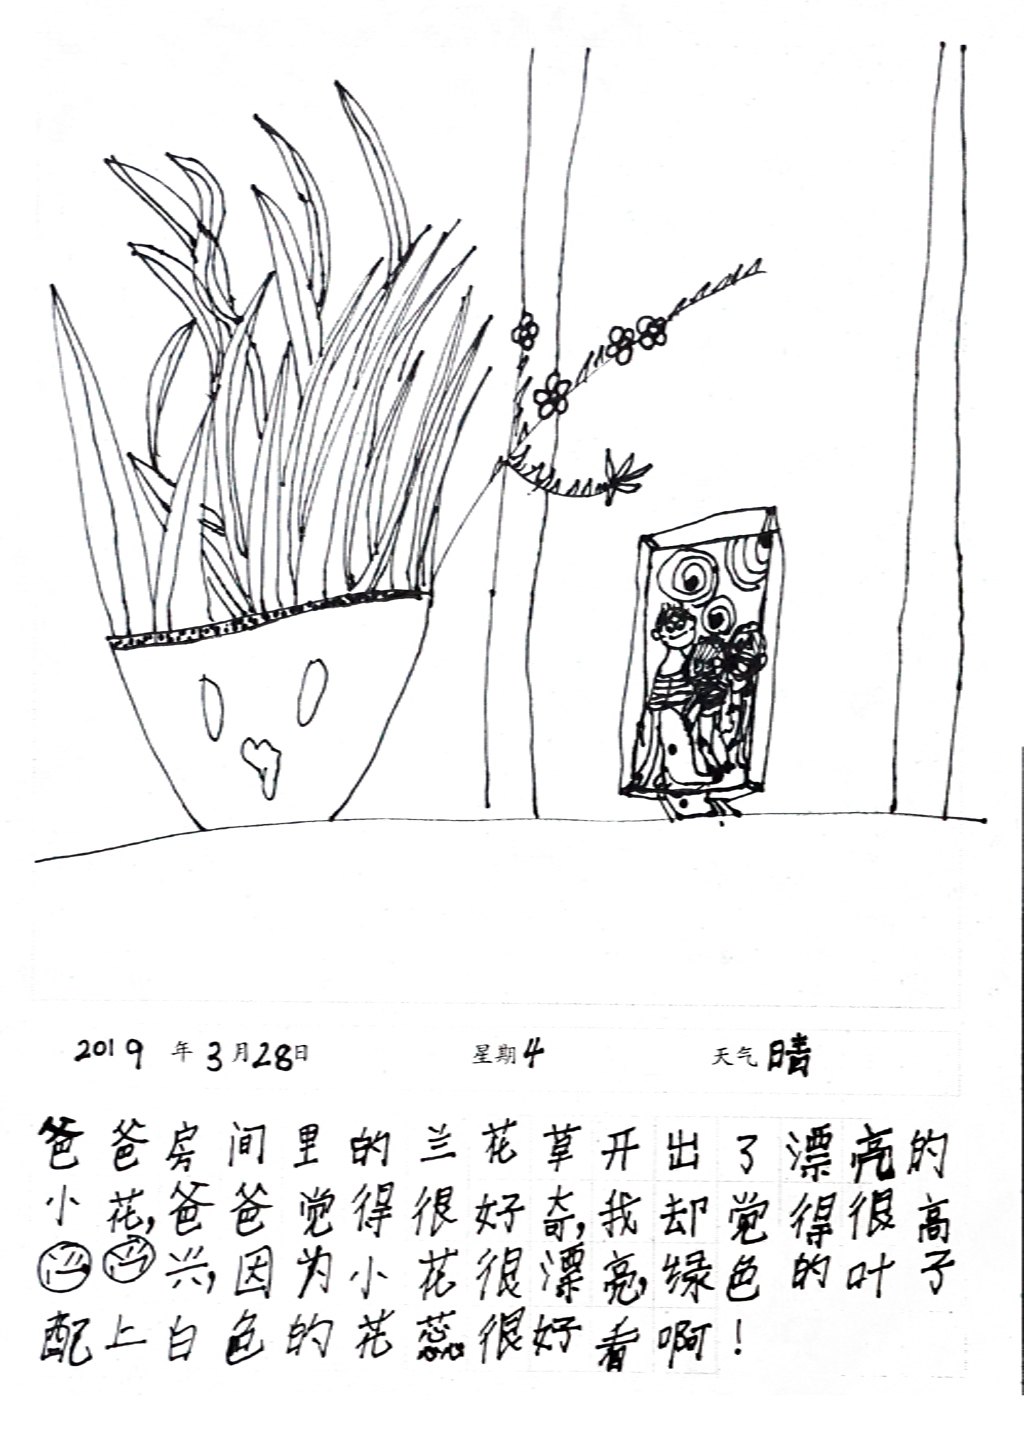 2019年3月28日 星期4 天气晴
爸爸房间里的兰花草开出了漂亮的
小花,爸爸觉得很好奇,我却觉得很高
兴,因为小花很漂亮,绿色的叶子
配上白色的花蕊很好看啊!